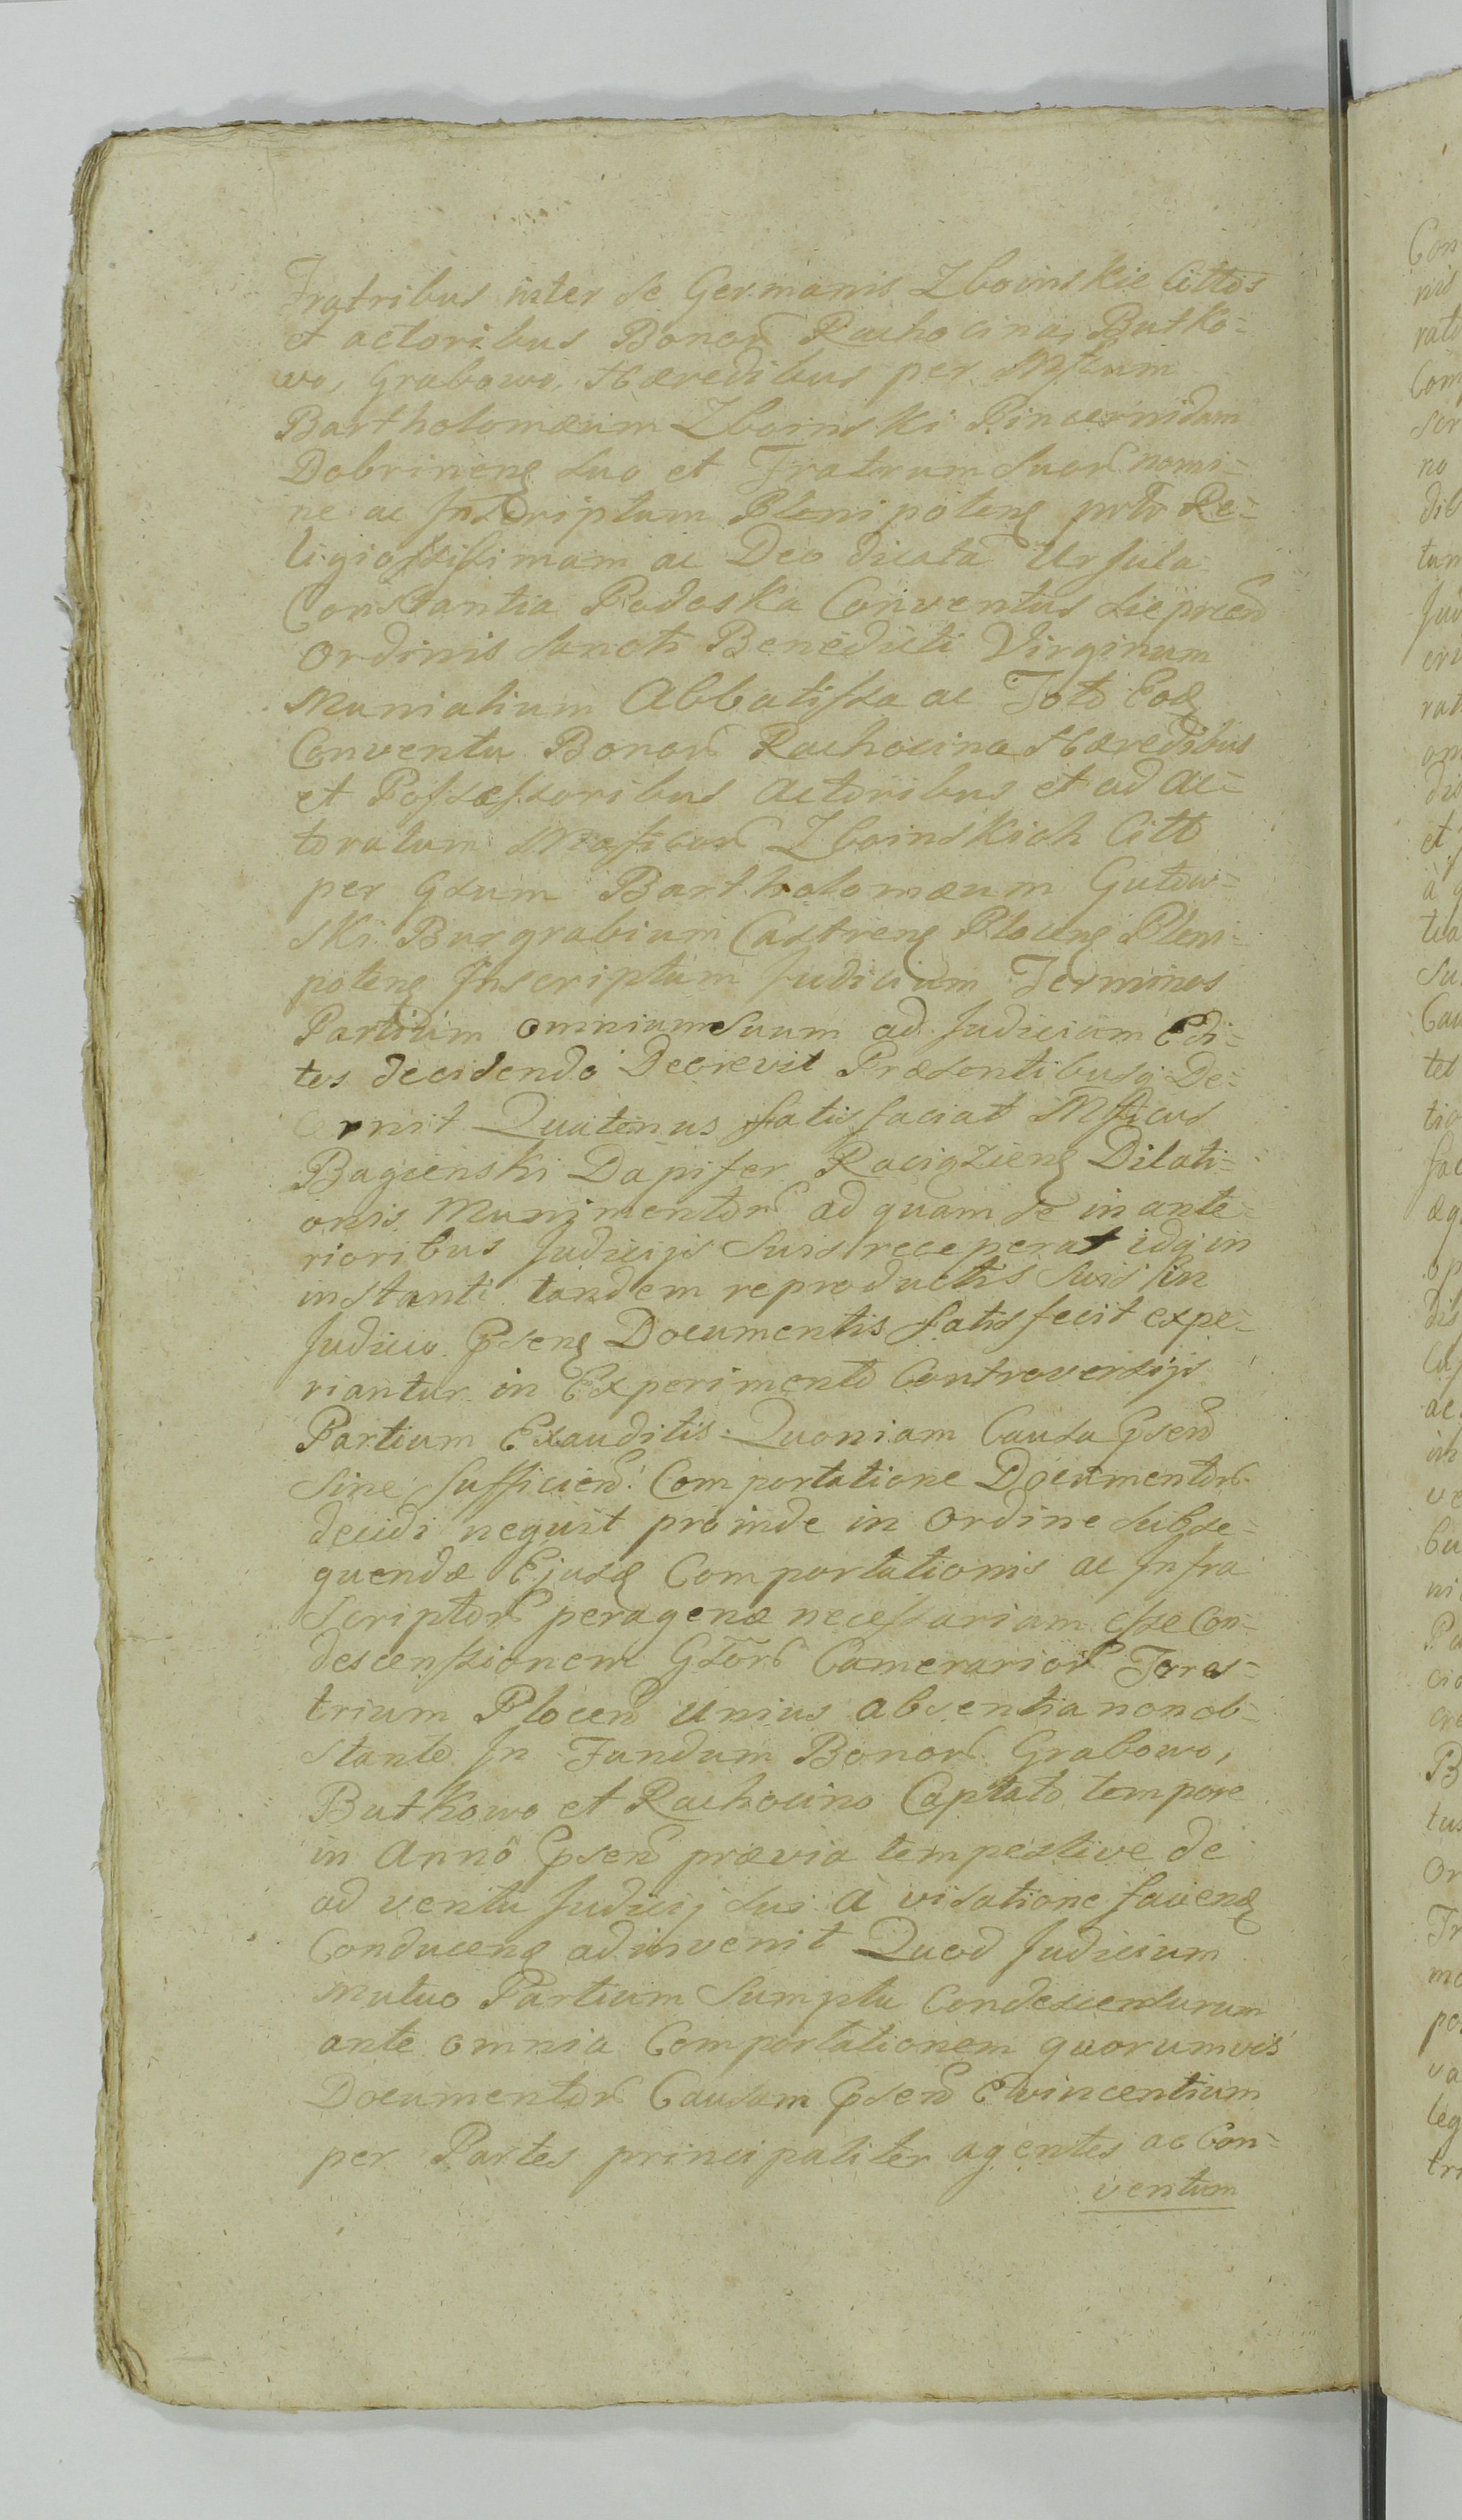 Fratribus inter se Germanis Zboinskie Cittos
et actoribus Bonor Rachocina, Butko-
wo, Grabowo, Hæredibus per Mficum
Bartholomæum Zboinski Pincernidam
Dobrinenę suo et Fratrum suor nomi-
ne ac Inscriptum Plenipotenę prto Re-
ligiossissimam ac Deo dicata Ursula
Constantia Podoska Conventus Sieprcen
Ordinis Sancti Benedicti Virginum
Munialium Abbatissa ac Toto Eodę
Conventu Bonor Rachocina Hæredibus
et Possessoribus Actoribus et ad Ac-
toratum Mficor Zboinskich Citto
per Gsum Bartholomæum Gutow-
ski Burgrabium Castrenę Plocenę Pleni-
potenę Inscriptum Judicium Terminos
Partium omnium Suum ad Judicium Edi-
tos decidendo Decrevit Præsentibusq De-
cernit Quatenus satisfaciat Mficus
Bagienski Dapifer Raciązienę Dilati-
onis Munimentor ad quam se in ante-
rioribus Judicijs Suis receperat idq in
instanti tandem reproductis Suis in
Judicio Psenę Documentis satisfecit expe-
riantur in Experimento Controversijs
Partium Exauditis. Quoniam Causa Psen
Sine Sufficien Comportatione Documentor
decidi nequit proinde in Ordine subse-
quendæ Ejusdę Comportationis ac Infra
Scriptor peragenæ necessariam esse Con-
descenssionem Gsor Camerarior Terres-
trium Plocen Unius absentia non ob-
stante In Fundum Bonor Grabowo,
Butkowo et Rachocino Captato tempore
in Anno Psen prævia tempestive de
ad ventu Judicij sui a visatione facienę
Conducenę adinvenit Quod Judicium
mutuo Partium Sumptu Condescensurum
ante omnia Comportationem quorumvis
Documentor Causam Psen Evincentium
per Partes principaliter agentes ac Con-
ventum